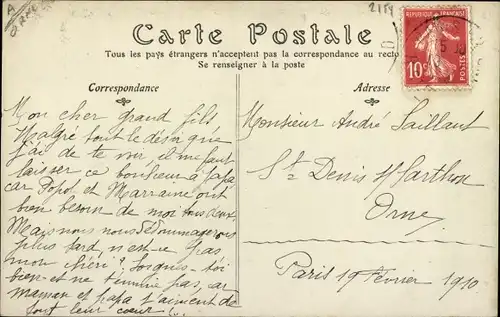 A
Orne
2154
Carte Postale
Tous les pays étrangers n'acceptent pas la correspondance au recto
Se renseigner à la poste
Correspondance
Adresse
10c
POSTES
Mon cher grand fils
Malgré tout le désir que
j'ai de te voir, il me faut
laisser ce bonheur à papa
car Popol et Marraine ont
bien besoin de moi tous deux
Mais nous nous dédommagerons
plus tard n'est-ce pas,
mon chéri? Soignes-toi
bien et ne t'ennuie pas, car
maman et papa t'aiment de
tout leur cœur!..
Monsieur André Saillant
St Denis s/ Sarthon
Orne
Paris 19 février 1910